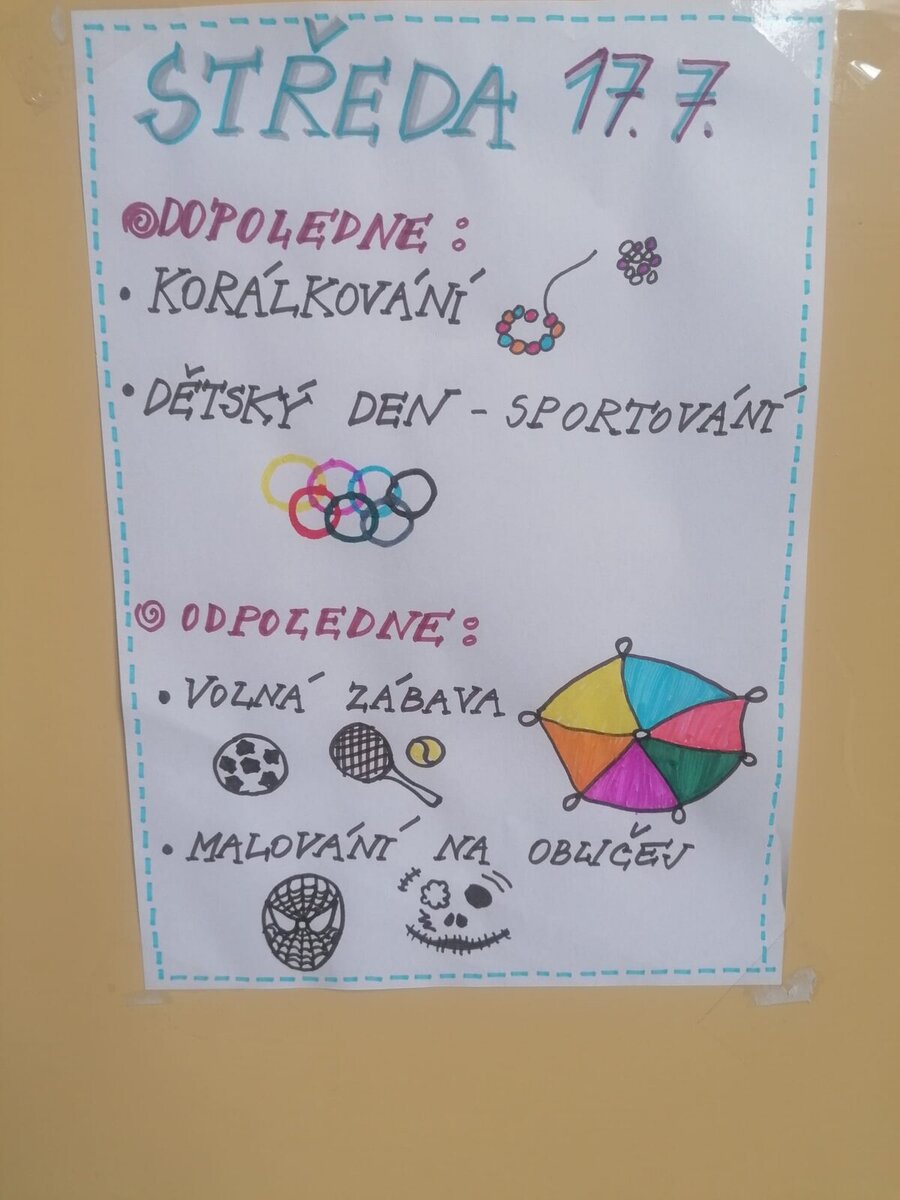 STŘEDA 17. 7.
DOPOLEDNE:
• KORÁLKOVÁNÍ
• DĚTSKÝ DEN - SPORTOVÁNÍ
ODPOLEDNE:
• VOLNÁ ZÁBAVA
• MALOVÁNÍ NA OBLIČEJ